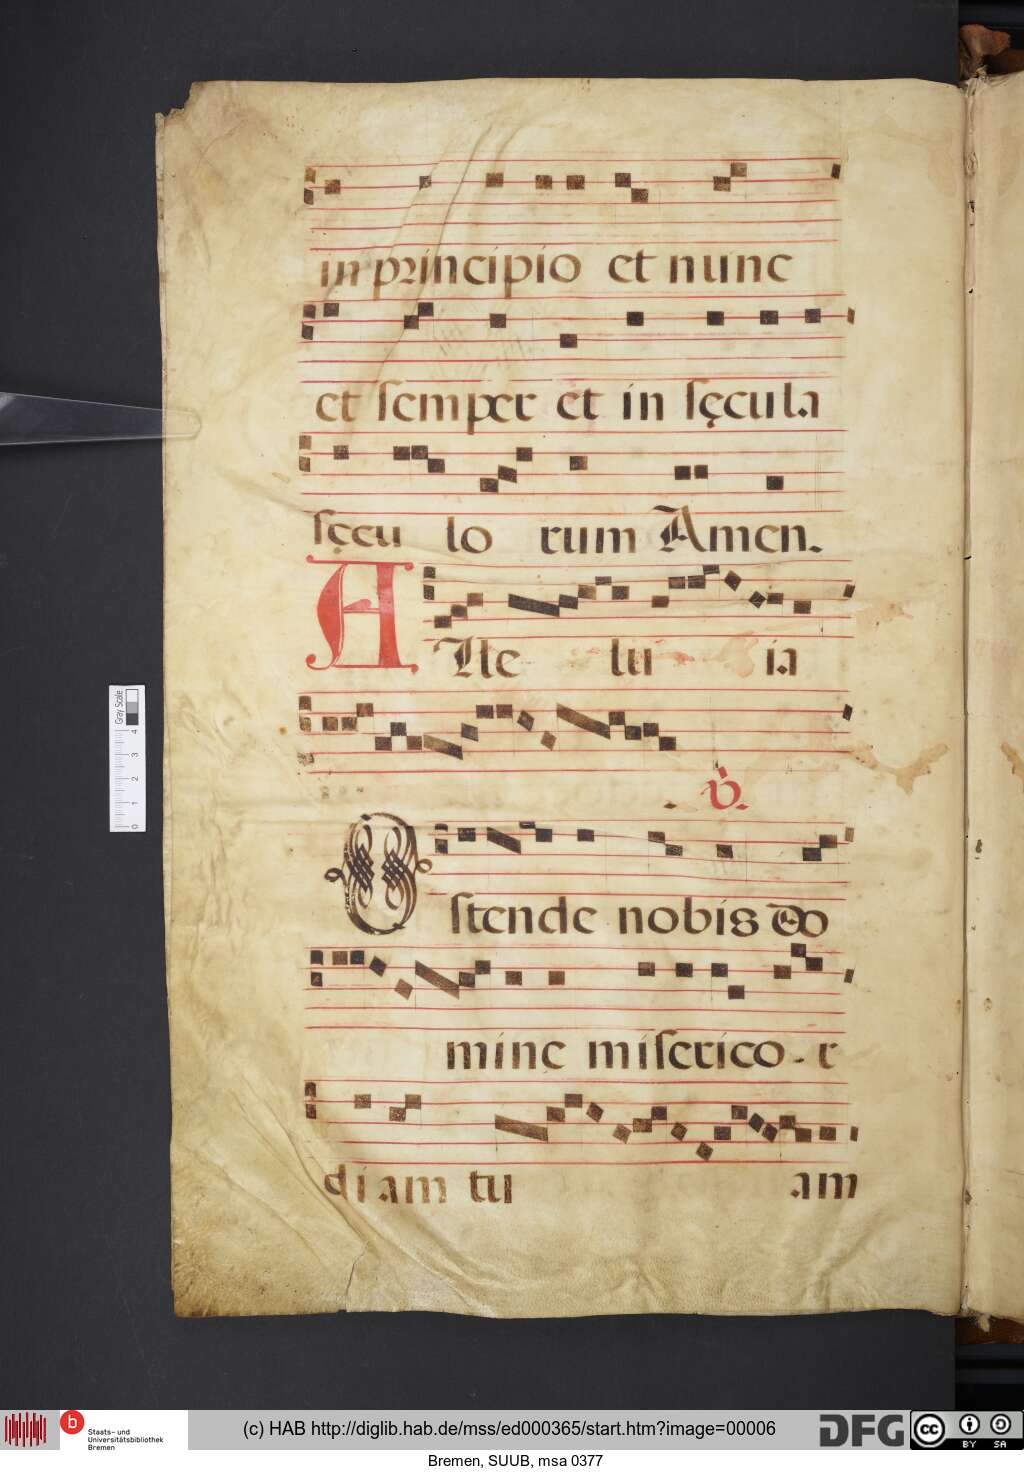 in principio et nunc
et ſemper et in ſęcula
ſęcu lo rum Amen.
Alle lu ia
℣.
Oſtende nobis Do
mine miſerico-r
diam tu am
Gray Scale
0 1 2 3 4
b
Staats- und
Universitätsbibliothek
Bremen
(c) HAB http://diglib.hab.de/mss/ed000365/start.htm?image=00006
DFG
cc BY SA
Bremen, SUUB, msa 0377